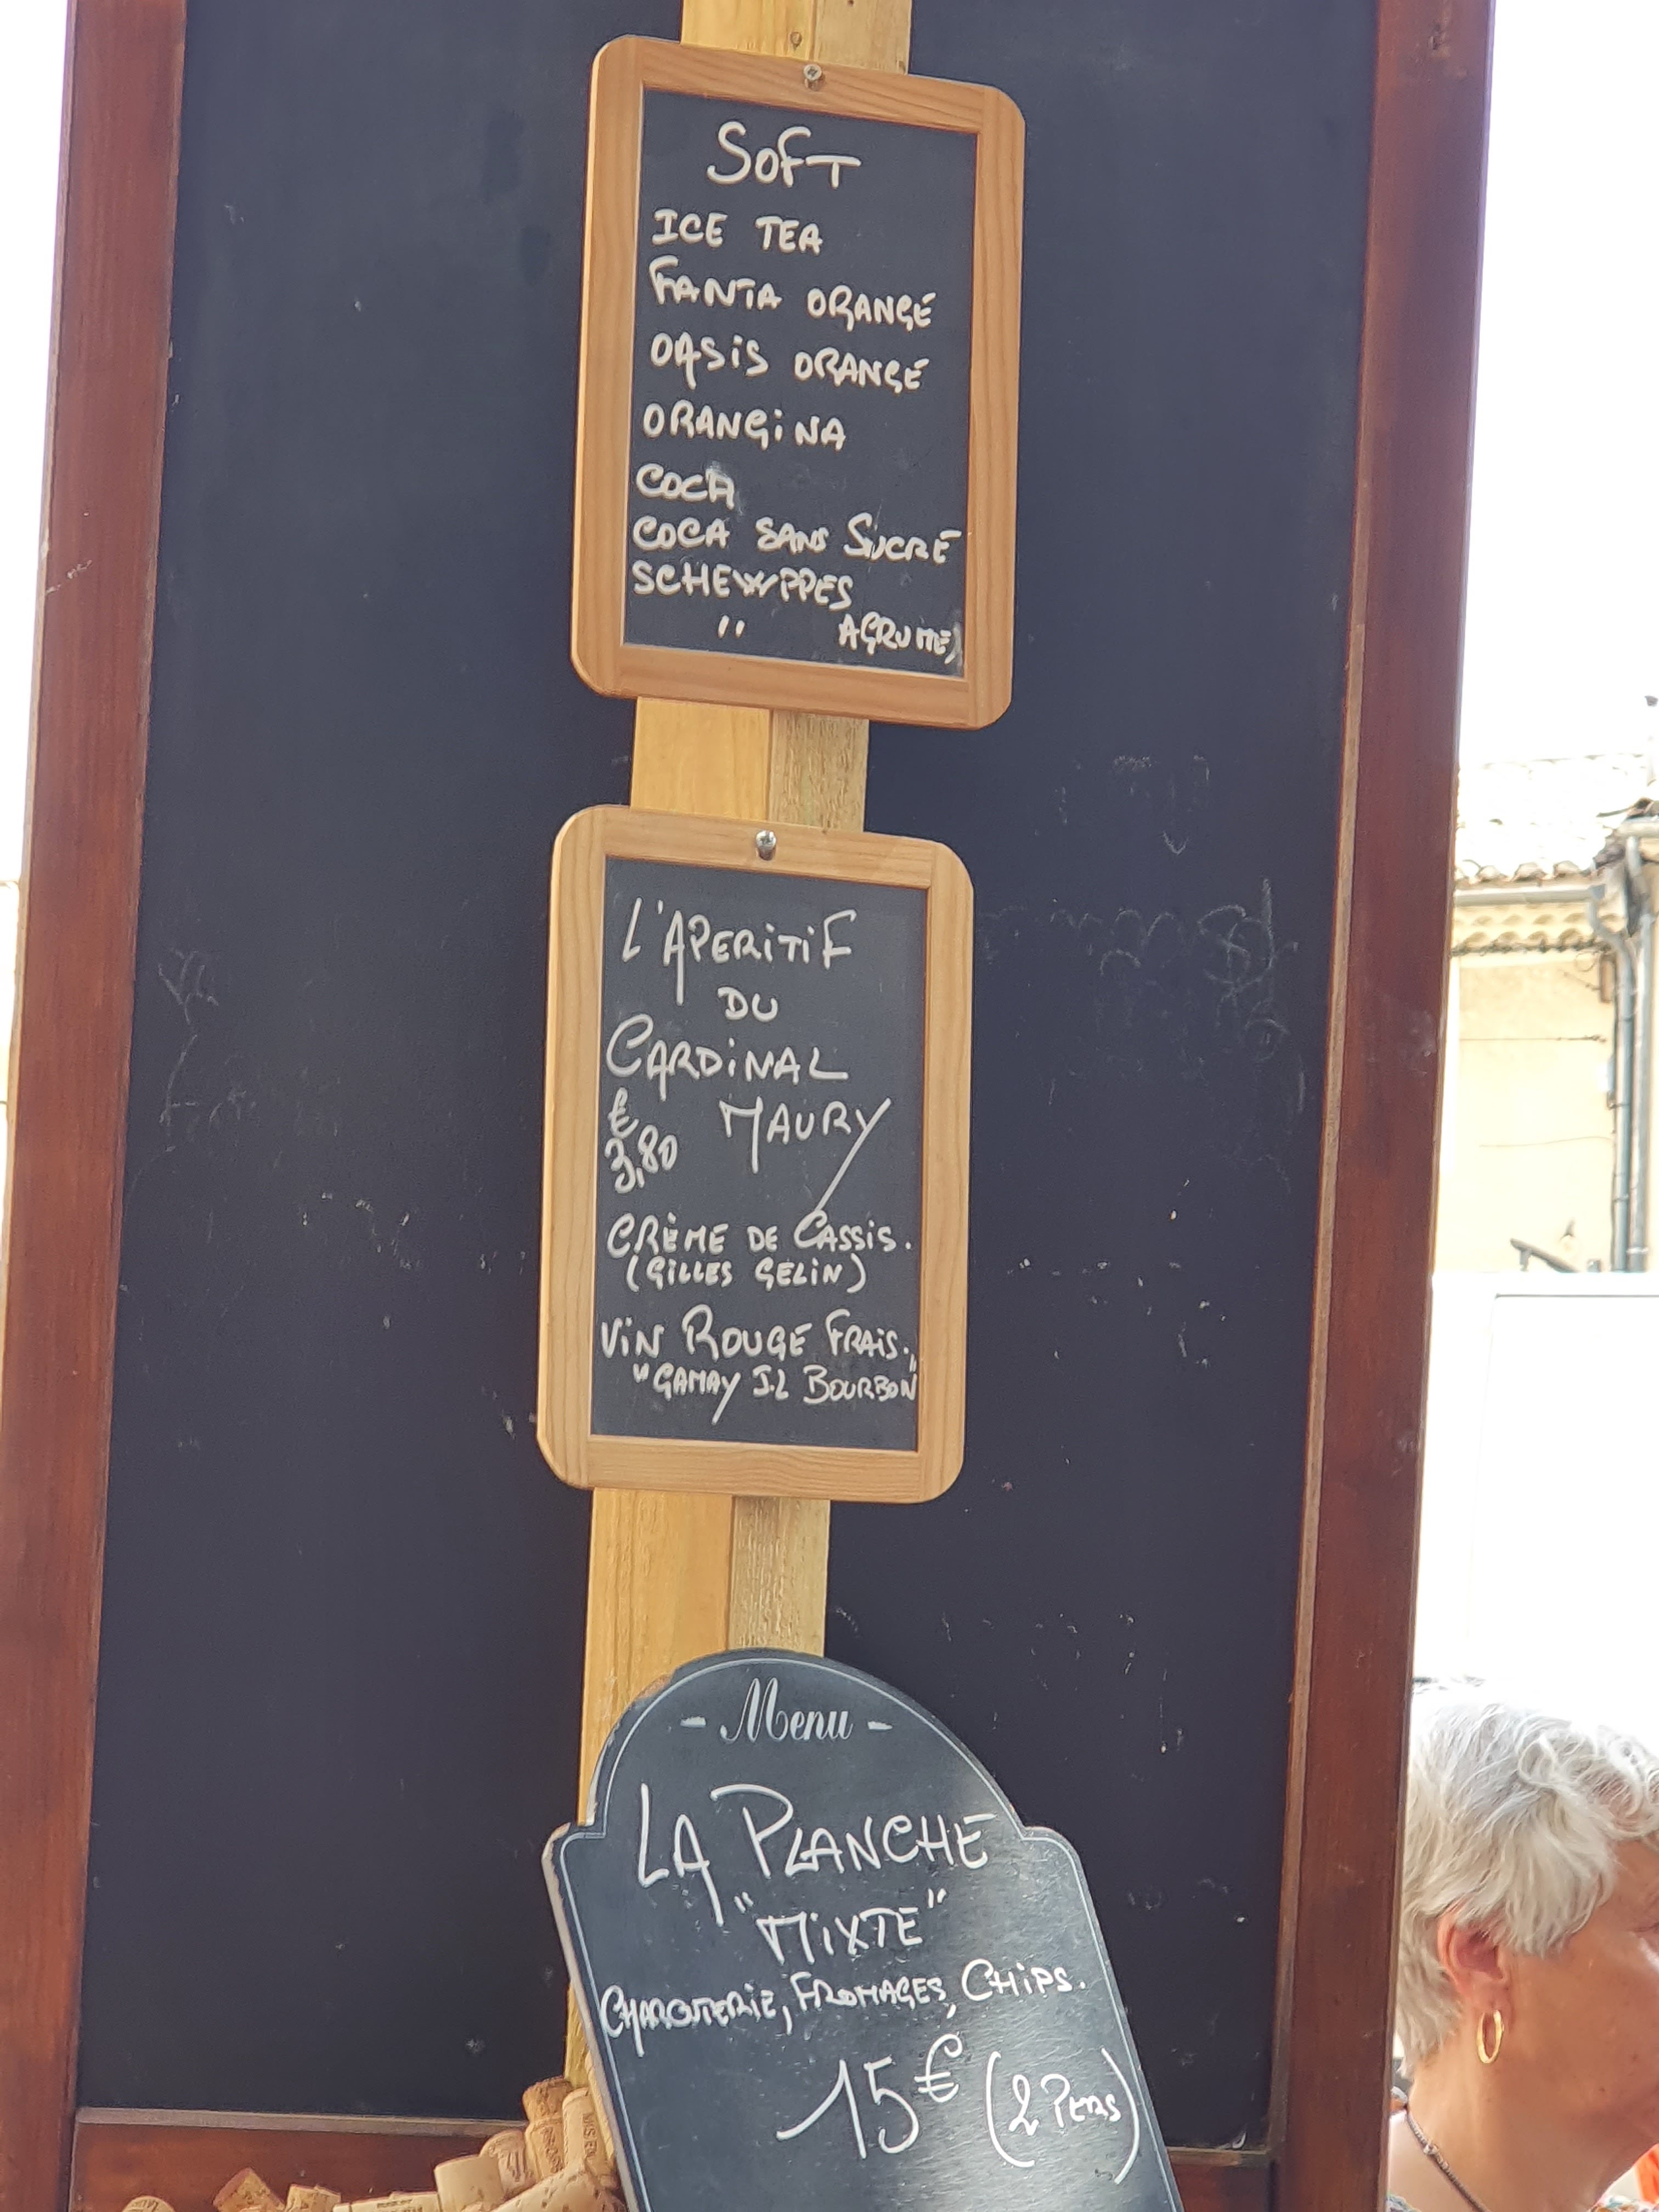 SOFT
ICE TEA
FANTA ORANGE
OASIS ORANGE
ORANGINA
COCA
COCA SANS SUCRE
SCHEWPPES
" AGRUMES
L'APERITIF
DU
CARDINAL
MAURY
€
3,80
CRÈME DE CASSIS.
(GILLES GELIN)
VIN ROUGE FRAIS.
"GAMAY J.L BOURBON"
- Menu -
LA PLANCHE
"MIXTE"
CHARCUTERIE, FROMAGES, CHIPS.
15€ (2 PERS)